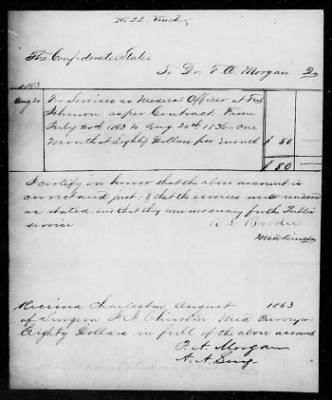 No 22. Voucher
The Confederate States
To Dr. F. A. Morgan Dr
1863
Aug 20 For Services as Medical Officer at Fort
Johnson as per Contract From
July 20th 1863 to Aug 20th 1836 - One
Month at Eighty Dollars per month $ 80
$ 80
I certify on honor that the above account is
correct and just, & that the services were rendered
as stated, and that they are necessary for the Public
service
Brodie
Med Director
Received Charleston August 1863
of Surgeon Med Purveyor
Eighty Dollars in full of the above account
F. A. Morgan
A. A. Surg